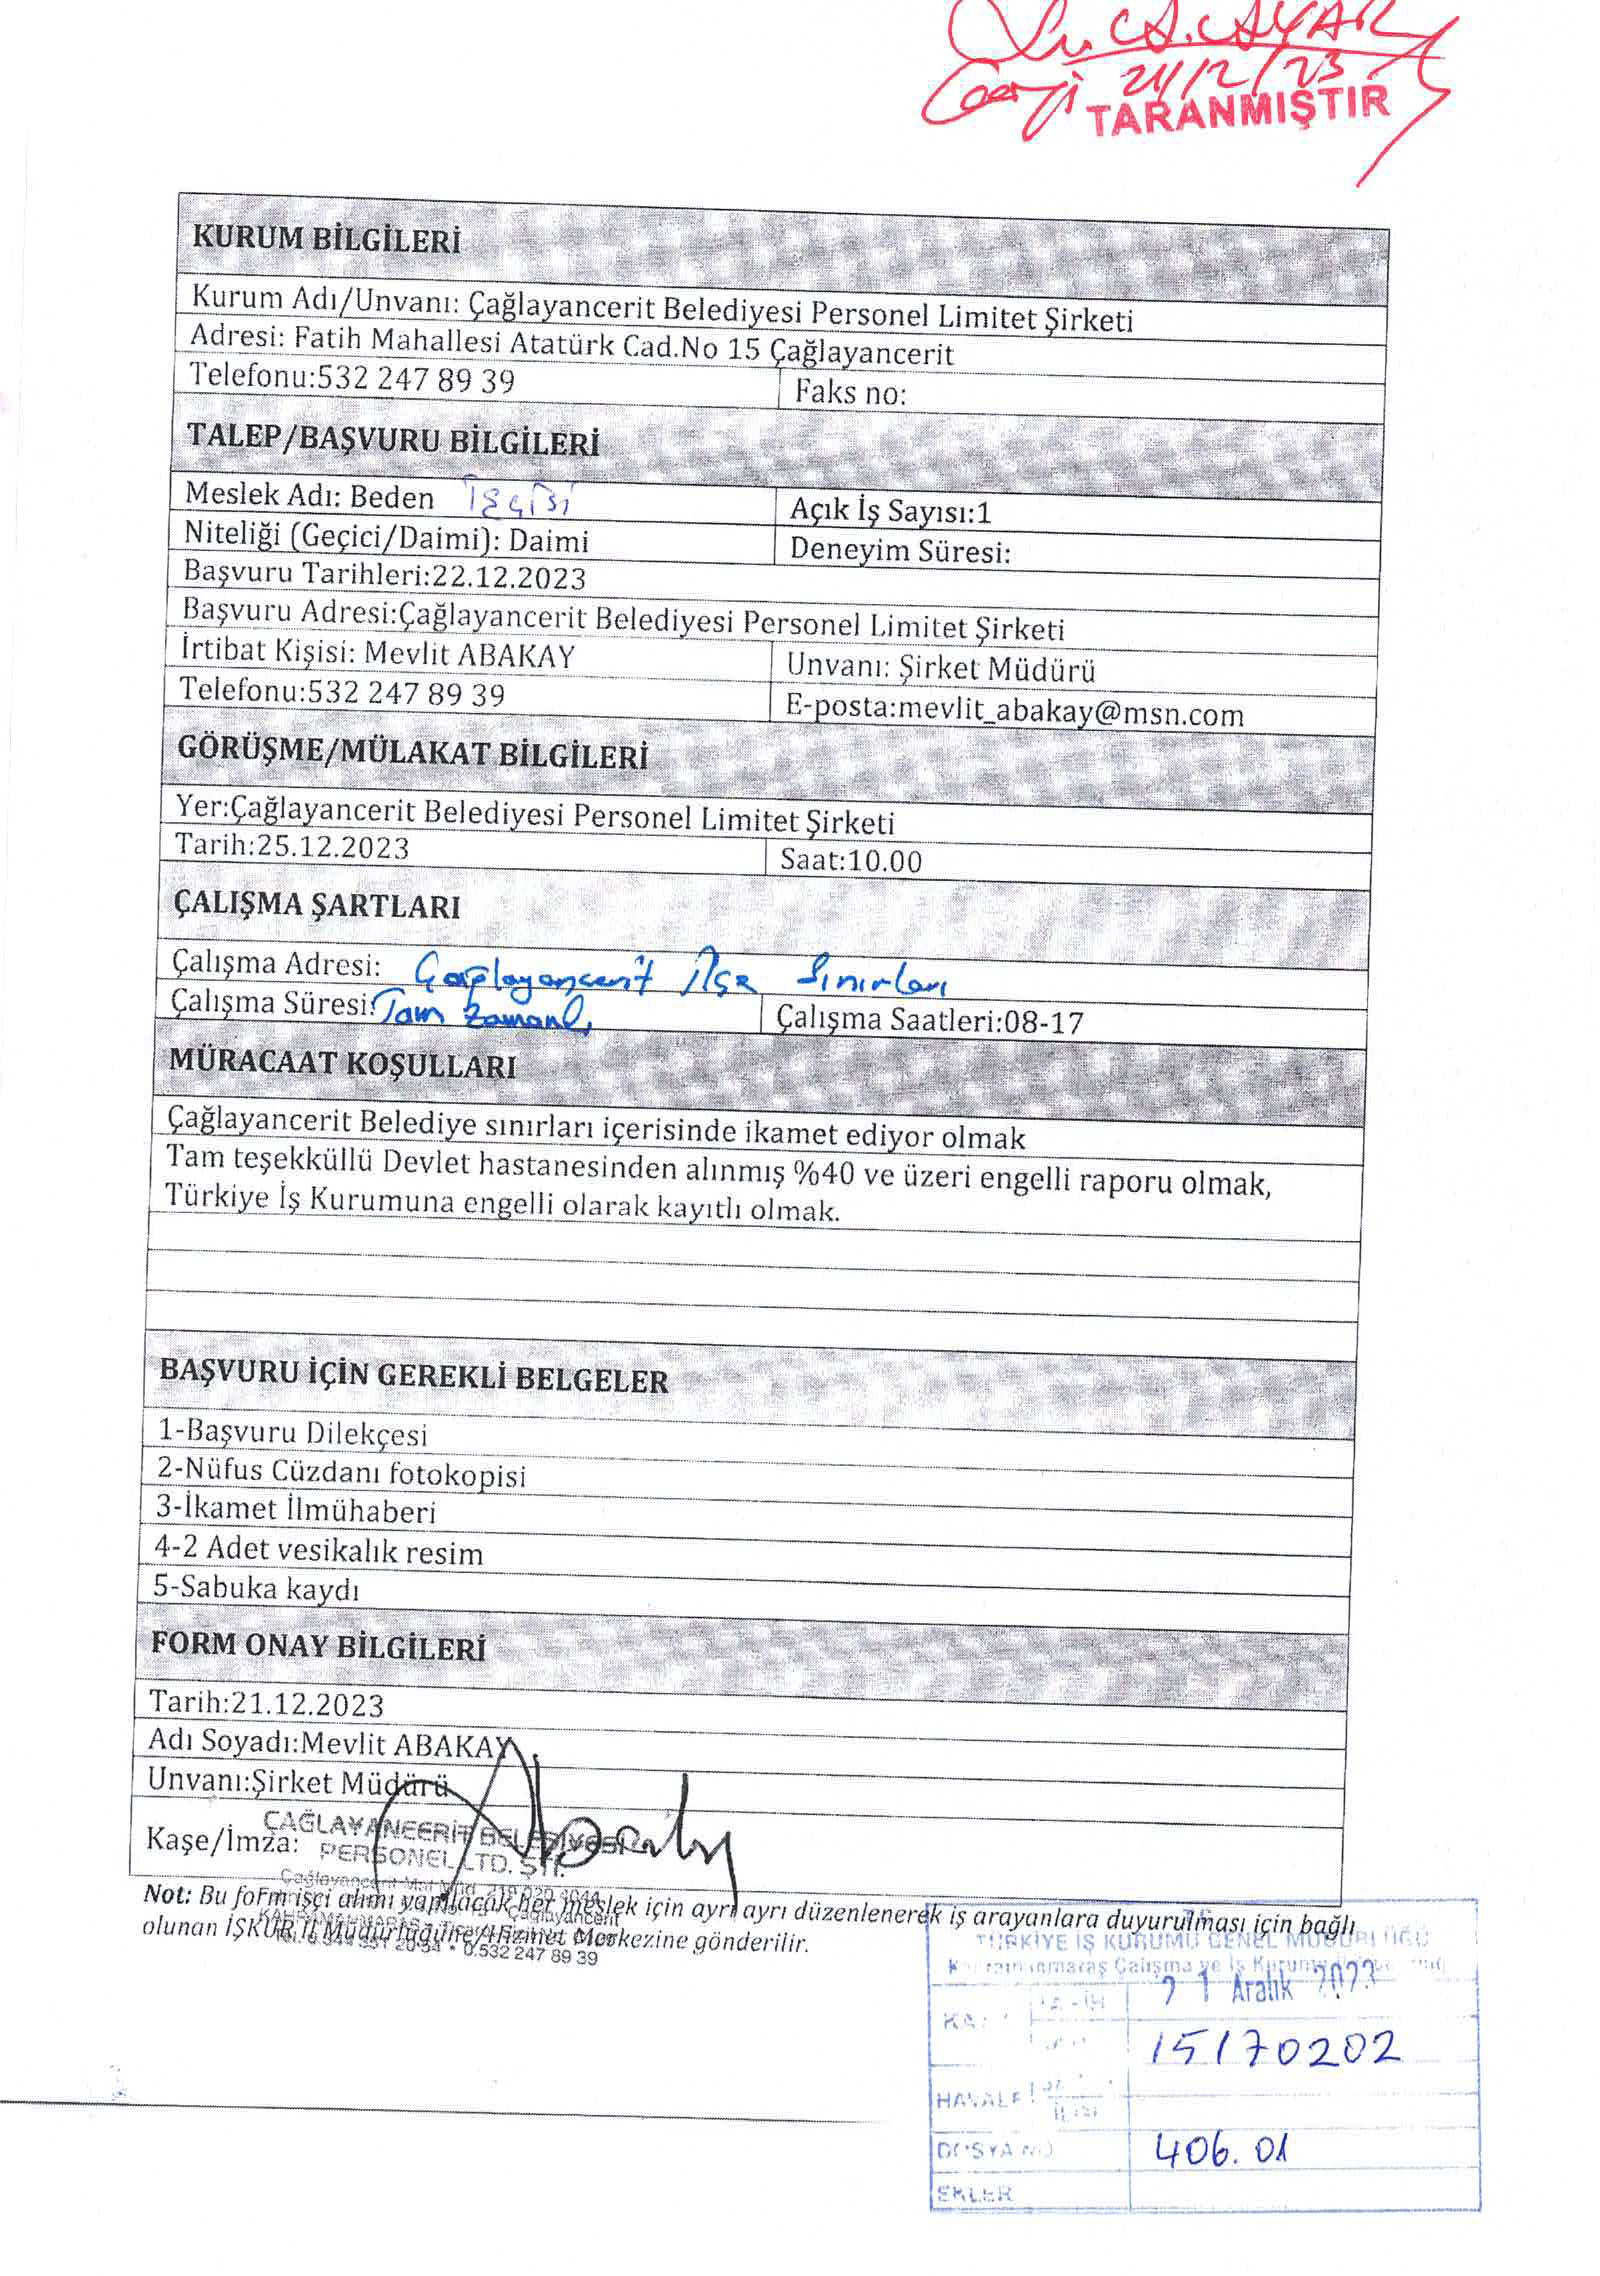 A. AYAR
21/12/23
TARANMIŞTIR
KURUM BİLGİLERİ
Kurum Adı/Unvanı: Çağlayancerit Belediyesi Personel Limitet Şirketi
Adresi: Fatih Mahallesi Atatürk Cad.No 15 Çağlayancerit
Telefonu:532 247 89 39 Faks no:
TALEP/BAŞVURU BİLGİLERİ
Meslek Adı: Beden İŞÇİSİ Açık İş Sayısı:1
Niteliği (Geçici/Daimi): Daimi Deneyim Süresi:
Başvuru Tarihleri:22.12.2023
Başvuru Adresi:Çağlayancerit Belediyesi Personel Limitet Şirketi
İrtibat Kişisi: Mevlit ABAKAY Unvanı: Şirket Müdürü
Telefonu:532 247 89 39 E-posta:mevlit_abakay@msn.com
GÖRÜŞME/MÜLAKAT BİLGİLERİ
Yer:Çağlayancerit Belediyesi Personel Limitet Şirketi
Tarih:25.12.2023 Saat:10.00
ÇALIŞMA ŞARTLARI
Çalışma Adresi: Çağlayancerit İlçe Sınırları
Çalışma Süresi: Tam Zamanlı Çalışma Saatleri:08-17
MÜRACAAT KOŞULLARI
Çağlayancerit Belediye sınırları içerisinde ikamet ediyor olmak
Tam teşekküllü Devlet hastanesinden alınmış %40 ve üzeri engelli raporu olmak,
Türkiye İş Kurumuna engelli olarak kayıtlı olmak.
BAŞVURU İÇİN GEREKLİ BELGELER
1-Başvuru Dilekçesi
2-Nüfus Cüzdanı fotokopisi
3-İkamet İlmühaberi
4-2 Adet vesikalık resim
5-Sabuka kaydı
FORM ONAY BİLGİLERİ
Tarih:21.12.2023
Adı Soyadı:Mevlit ABAKAY
Unvanı:Şirket Müdürü
Kaşe/İmza:
ÇAĞLAYANCERİT BELEDİYESİ
PERSONEL LTD. ŞTİ.
Not: Bu form işçi alımı yapılacak her meslek için ayrı ayrı düzenlenerek iş arayanlara duyurulması için bağlı
olunan İŞKUR İl Müdürlüğüne/Hizmet Merkezine gönderilir.
0.532 247 89 39
TÜRKİYE İŞ KURUMU GENEL MÜDÜRLÜĞÜ
Kahramanmaraş Çalışma ve İş Kurumu
21 Aralık 2023
15170202
HAVALE
DOSYA NO 406.01
EKLER